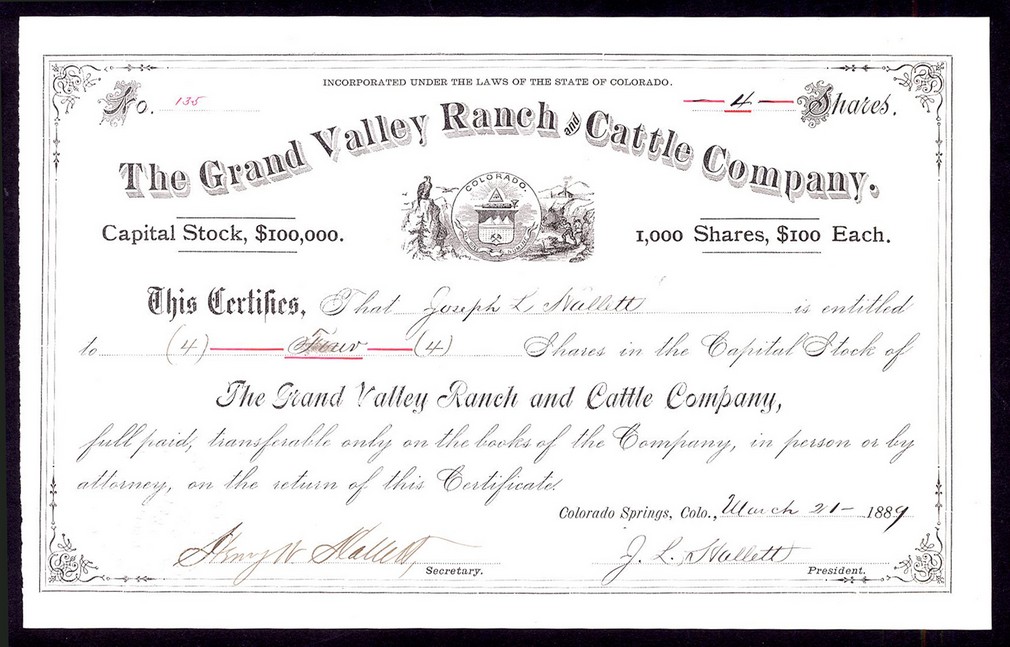 INCORPORATED UNDER THE LAWS OF THE STATE OF COLORADO.
No. 135
4 Shares.
The Grand Valley Ranch and Cattle Company.
COLORADO.
Capital Stock, $100,000.
1,000 Shares, $100 Each.
This Certifies, That Joseph L. Hallett is entitled
to (4) Four (4) Shares in the Capital Stock of
The Grand Valley Ranch and Cattle Company,
full paid, transferable only on the books of the Company, in person or by
attorney, on the return of this Certificate.
Colorado Springs, Colo., March 21- 1889
Henry W. Hallett, Secretary.
J. L. Hallett President.